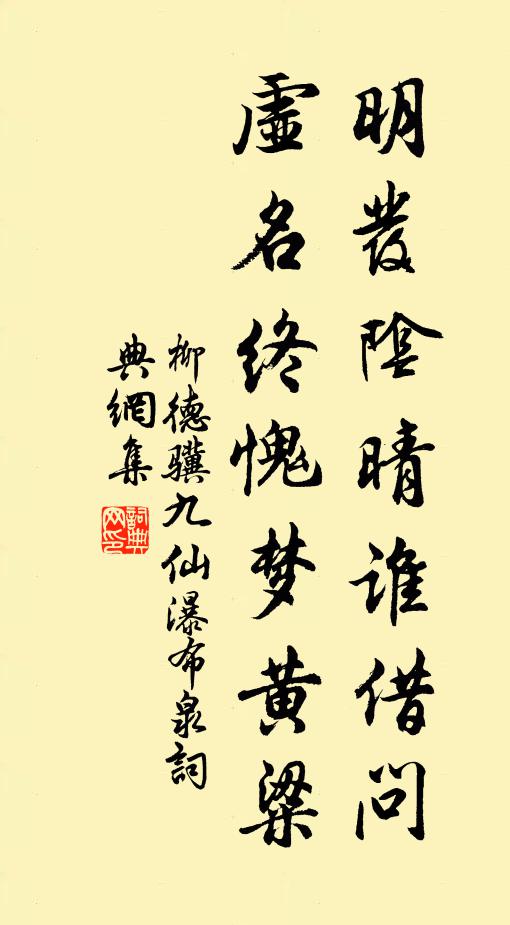 明发陰晴谁借问
虚名终愧梦黄粱
柳德骥九仙瀑布泉詞
典網集
詞典
网印